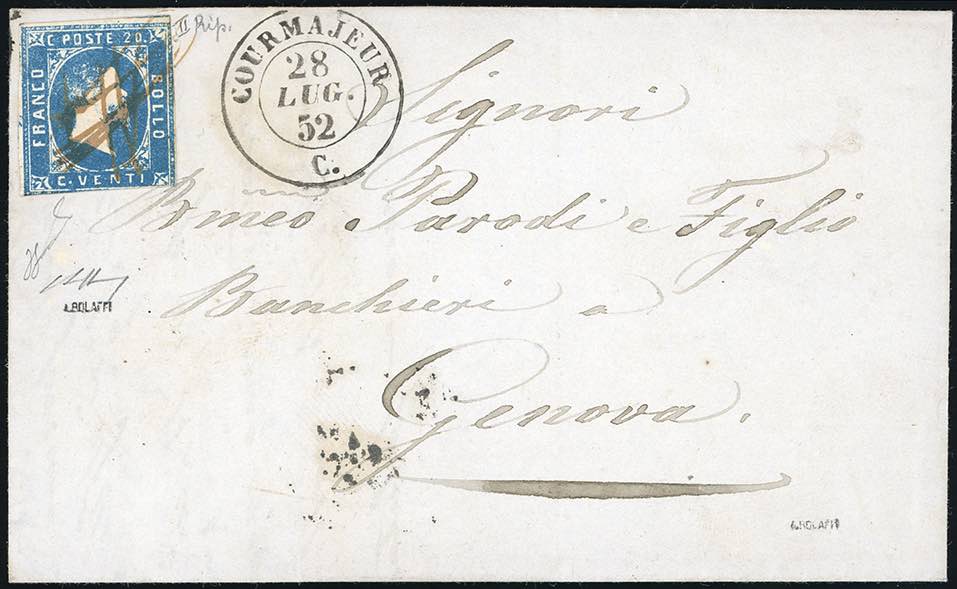 C POSTE 20.
FRANCO
BOLLO
C. VENTI
II Rip.
COURMAJEUR
28
LUG.
52
C.
Signori
Romeo Parodi e Figlio
Banchieri a
Genova.
A.BOLAFFI
A.BOLAFFI